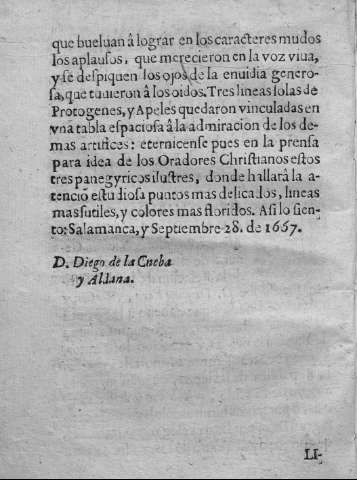 que bueluan â lograr en los caracteres mudos
los aplausos, que merecieron en la voz viua,
y se despiquen los ojos de la enuidia genero-
sa, que tuuieron â los oidos. Tres lineas solas de
Protogenes, y Apeles quedaron vinculadas en
vna tabla espaciosa â la admiracion de los de-
mas artifices: eternicense pues en la prensa
para idea de los Oradores Christianos estos
tres panegyricos ilustres, donde hallarà la a-
tenciõ estudiosa puntos mas delicados, lineas
mas sutiles, y colores mas floridos. Asi lo sien-
to: Salamanca, y Septiembre 28. de 1667.
D. Diego de la Cueba
y Aldana.
LI-